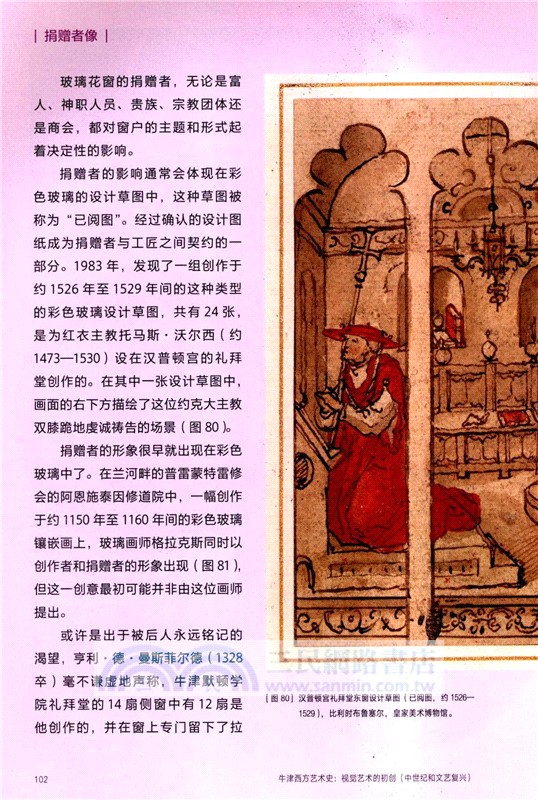 捐赠者像
玻璃花窗的捐赠者，无论是富
人、神职人员、贵族、宗教团体还
是商会，都对窗户的主题和形式起
着决定性的影响。
捐赠者的影响通常会体现在彩
色玻璃的设计草图中，这种草图被
称为“已阅图”。经过确认的设计图
纸成为捐赠者与工匠之间契约的一
部分。1983 年，发现了一组创作于
约 1526 年至 1529 年间的这种类型
的彩色玻璃设计草图，共有 24 张，
是为红衣主教托马斯·沃尔西（约
1473—1530）设在汉普顿宫的礼拜
堂创作的。在其中一张设计草图中，
画面的右下方描绘了这位约克大主教
双膝跪地虔诚祷告的场景（图 80）。
捐赠者的形象很早就出现在彩色
玻璃中了。在兰河畔的普雷蒙特雷修
会的阿恩施泰因修道院中，一幅创作
于约 1150 年至 1160 年间的彩色玻璃
镶嵌画上，玻璃画师格拉克斯同时以
创作者和捐赠者的形象出现（图 81），
但这一创意最初可能并非由这位画师
提出。
或许是出于被后人永远铭记的
渴望，亨利·德·曼斯菲尔德（1328
卒）毫不谦虚地声称，牛津默顿学
院礼拜堂的 14 扇侧窗中有 12 扇是
他创作的，并在窗上专门留下了拉
三民網路書店
www.sanmin.com.tw
［图 80］汉普顿宫礼拜堂东窗设计草图（已阅图，约 1526—
1529），比利时布鲁塞尔，皇家美术博物馆。
102
牛津西方艺术史：视觉艺术的初创（中世纪和文艺复兴）